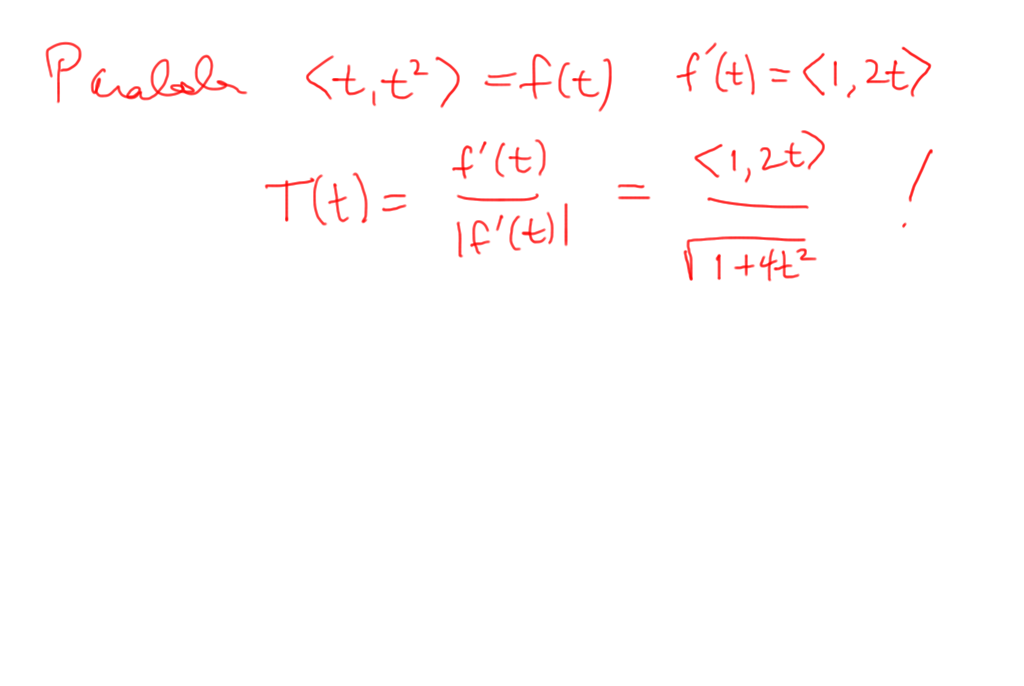 Parabola <t,t²> = f(t) f′(t) = <1,2t>
T(t) = f′(t) / |f′(t)| = <1,2t> / √1+4t² !